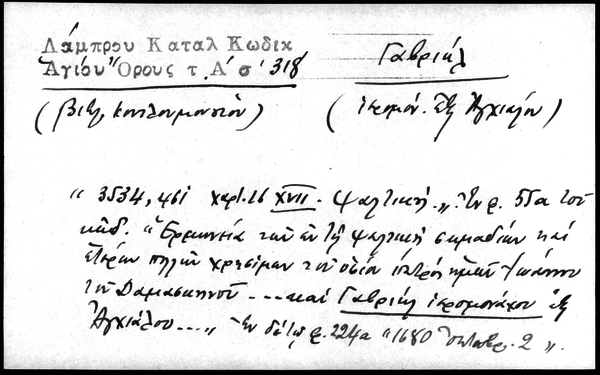 Λάμπρου Καταλ Κωδικ
Ἁγίου Ὄρους τ. Α΄ σ΄ 318
Γαβριήλ
(Βιβλ. Κουτλουμουσίου)
(ἱερομόν. ἐξ Ἀγχιάλου)
" 3534, 461 χαρτ. 16 XVII. Ψαλτική. " Ἐν φ. 55α τοῦ
κώδ. " Ἑρμηνεία τῶν ἐν τῇ ψαλτικῇ σημαδίων καὶ
ἑτέρων πολλῶν χρησίμων τοῦ ὁσίου πατρὸς ἡμῶν Ἰωάννου
τοῦ Δαμασκηνοῦ ... καὶ Γαβριὴλ ἱερομονάχου ἐξ
Ἀγχιάλου ... " Ἐν δὲ τῷ φ. 224α "1680 Ὀκτωβρ. 2".